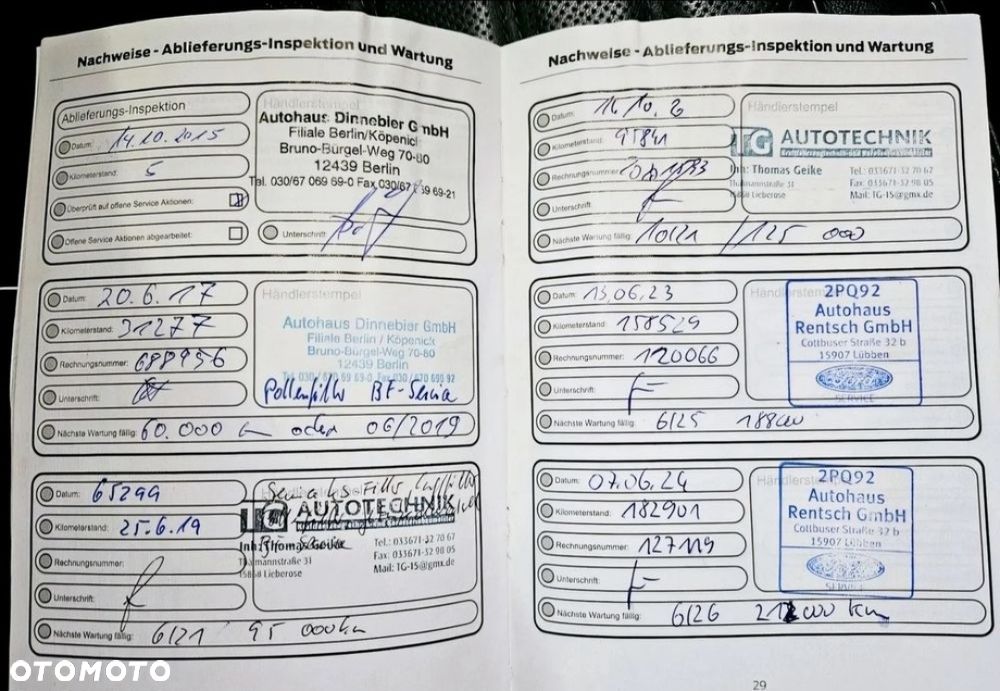 Nachweise - Ablieferungs-Inspektion und Wartung
Ablieferungs-Inspektion
Datum: 14.10.2015
Kilometerstand: 5
Überprüft auf offene Service Aktionen:
Offene Service Aktionen abgearbeitet:
Händlerstempel
Autohaus Dinnebier GmbH
Filiale Berlin/Köpenick
Bruno-Bürgel-Weg 70-80
12439 Berlin
Tel. 030/67 069 69-0 Fax 030/67 069 69-21
Unterschrift:
Datum: 20.6.17
Kilometerstand: 31277
Rechnungsnummer: 688956
Unterschrift:
Nächste Wartung fällig: 60.000 oder 06/2019
Händlerstempel
Autohaus Dinnebier GmbH
Filiale Berlin / Köpenick
Bruno-Bürgel-Weg 70-80
12439 Berlin
Pollenfilter BF-Service
Datum: 65299
Kilometerstand: 25.6.19
Rechnungsnummer:
Unterschrift:
Nächste Wartung fällig: 6/21 95 000 km
TG AUTOTECHNIK
Inh. Thomas Geike
Thamannstraße 31
15868 Lieberose
Tel.: 033671-32 70 67
Fax: 033671-32 98 05
Mail: TG-15@gmx.de
Nachweise - Ablieferungs-Inspektion und Wartung
Datum:
Kilometerstand: 95841
Rechnungsnummer:
Unterschrift:
Nächste Wartung fällig: 10/21 / 125 000
Händlerstempel
TG AUTOTECHNIK
Inh. Thomas Geike
Thamannstraße 31
15868 Lieberose
Tel.: 033671-32 70 67
Fax: 033671-32 98 05
Mail: TG-15@gmx.de
Datum: 13.06.23
Kilometerstand: 158529
Rechnungsnummer: 120066
Unterschrift:
Nächste Wartung fällig: 6/25 188000
2PQ92
Autohaus
Rentsch GmbH
Cottbuser Straße 32 b
15907 Lübben
SERVICE
Datum: 07.06.24
Kilometerstand: 182901
Rechnungsnummer: 127119
Unterschrift:
Nächste Wartung fällig: 6/26 212000 km
2PQ92
Autohaus
Rentsch GmbH
Cottbuser Straße 32 b
15907 Lübben
SERVICE
29
OTOMOTO